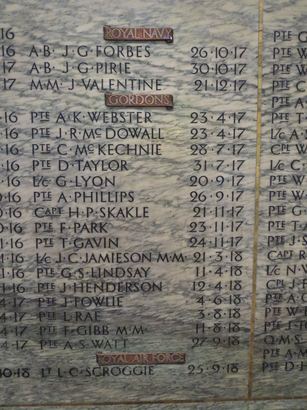 ·16 PTE G
ROYAL NAVY
·16 A·B· J·G·FORBES 26·10·17 PTE W
·17 A·B· J·G·PIRIE 30·10·17 PTE
·17 M·M· J·VALENTINE 21·12·17 PTE
GORDONS
·16 PTE A·K·WEBSTER 23·4·17 PTE
·16 PTE J·R·MCDOWALL 23·4·17
·16 PTE C·MCKECHNIE 28·7·17
·16 PTE D·TAYLOR 31·7·17 L/C
·16 L/C G·LYON 20·9·17 PTE W
·16 PTE A·PHILLIPS 26·9·17 PTE
·16 CAPT H·P·SKAKLE 21·11·17 PTE
·16 PTE F·PARK 23·11·17 PTE
·16 PTE T·GAVIN 24·11·17 PTE
·16 L/C J·C·JAMIESON M·M· 21·3·18 CAPT
·16 PTE G·S·LINDSAY 11·4·18
·17 PTE J·HENDERSON 12·4·18
·17 PTE J·FOWLIE 4·6·18
·17 PTE L·RAE 3·8·18
·17 PTE F·GIBB M·M· 11·8·18
·17 PTE A·S·WATT 27·9·18
ROYAL AIR FORCE
·18 LT L·C·SCROGGIE 25·9·18